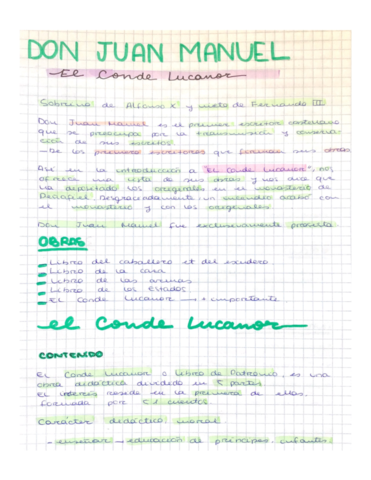 DON JUAN MANUEL
El Conde Lucanor
Sobrino de Alfonso X y nieto de Fernando III
Don Juan Manuel es el primer escritor castellano
que se preocupa por la transmisión y conserva-
ción de sus escritos.
-De los primeros escritores que firman sus obras
Así en la introducción a "El Conde Lucanor", nos
ofrece una lista de sus obras y nos dice que
ha depositado los originales en el monasterio de
Peñafiel. Desgraciadamente, un incendio acabó con
el monasterio y con los originales
Don Juan Manuel fue exclusivamente prosista
OBRAS
Libro del caballero et del escudero
Libro de la caza
Libro de las armas
Libro de los estados
El Conde Lucanor → + importante
el Conde Lucanor
CONTENIDO
El Conde Lucanor o Libro de Patronio, es una
obra didáctica dividida en 5 partes.
El interés reside en la primera de ellas,
formada por 51 cuentos.
Carácter didáctico: moral
-enseñar → educación de príncipes, infantes,